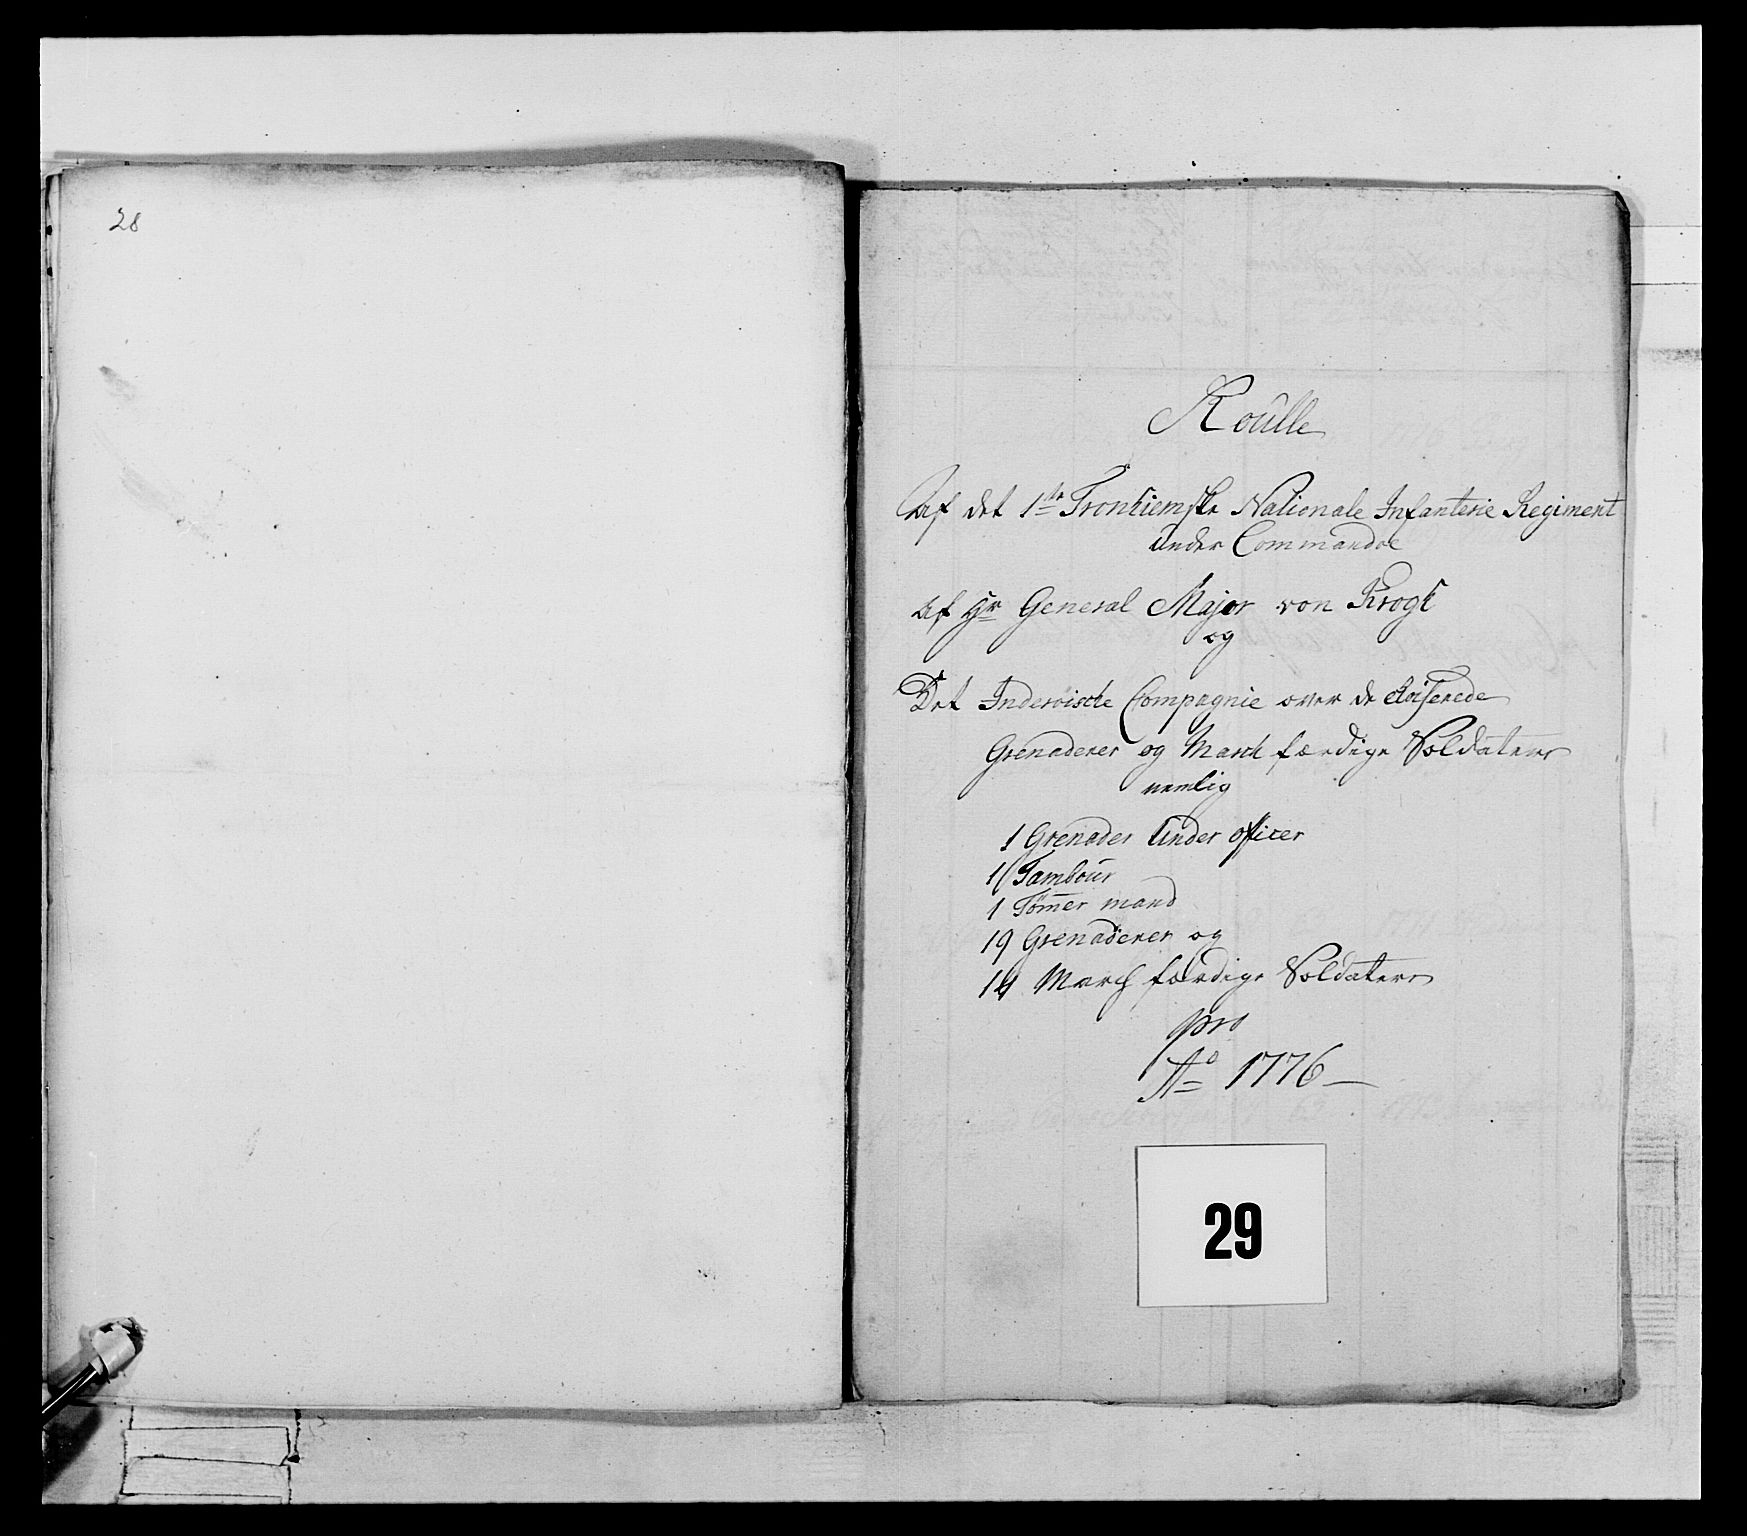 28
Roulle
Af det 1te Tronhiemske Nationale Infanterie Regiment
under Commandoe
af Hr General Major von Krogh
og
Det Inderöische Compagnie over de
Grenaderer og March færdige Soldatere
nemlig
1 Grenader Under officer
1 Tambour
1 Tømer mand
19 Grenaderer og
14 March færdige Soldatere
pro
Ao 1776
29